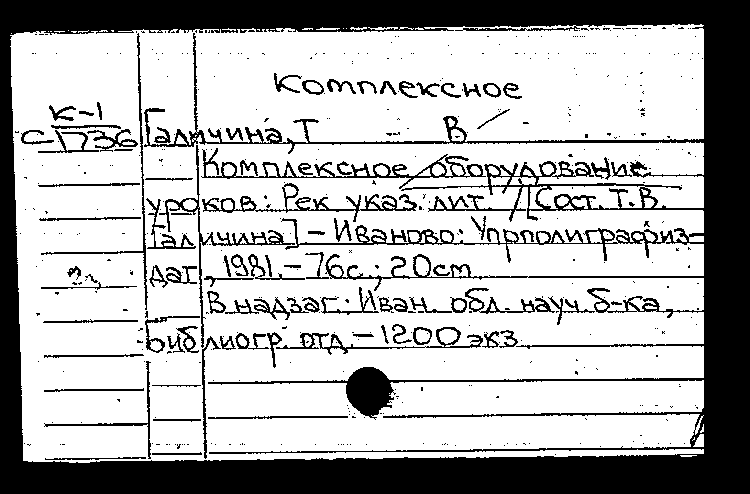 Комплексное
К-1
С-1736
Галичина, Т В
Комплексное оборудование
уроков: Рек указ. лит. /[Сост. Т.В.
Галичина] – Иваново: Упрполиграфиз-
дат, 1981. – 76с.; 20см.
В надзаг.: Иван. обл. науч. б-ка,
библиогр. отд. – 1200 экз.